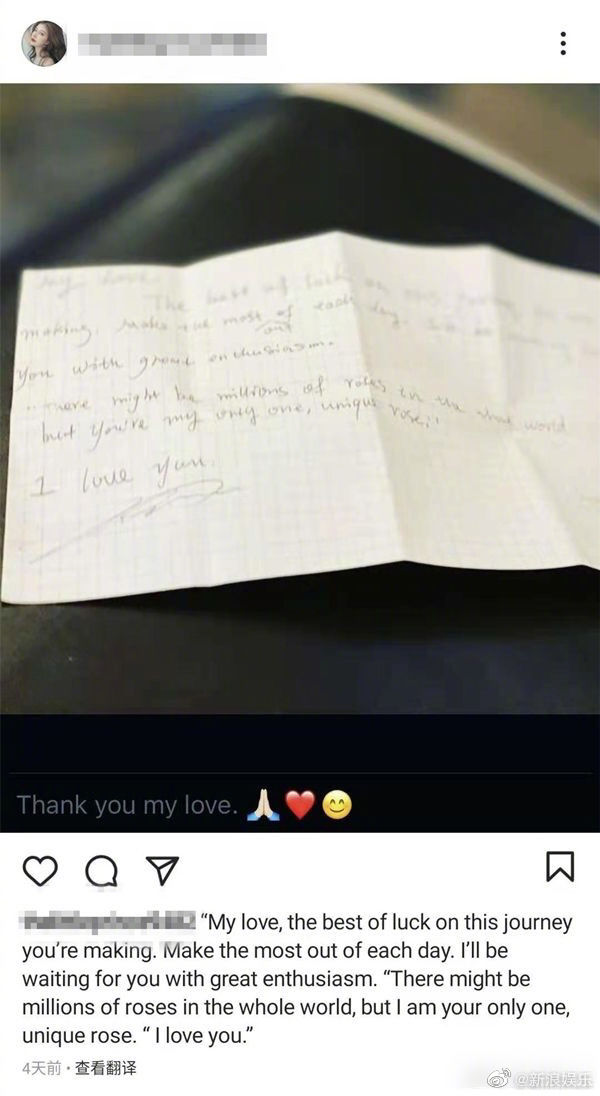 my love
The best of luck on this journey you're
making. Make the most out of each day. I'll be waiting
you with great enthusiasm.
"There might be millions of roses in the whole world
but you're my only one, unique rose."
I love you.
Thank you my love. 🙏🏻❤️😊
“My love, the best of luck on this journey
you’re making. Make the most out of each day. I’ll be
waiting for you with great enthusiasm. “There might be
millions of roses in the whole world, but I am your only one,
unique rose. “ I love you.”
4天前 · 查看翻译
@新浪娱乐